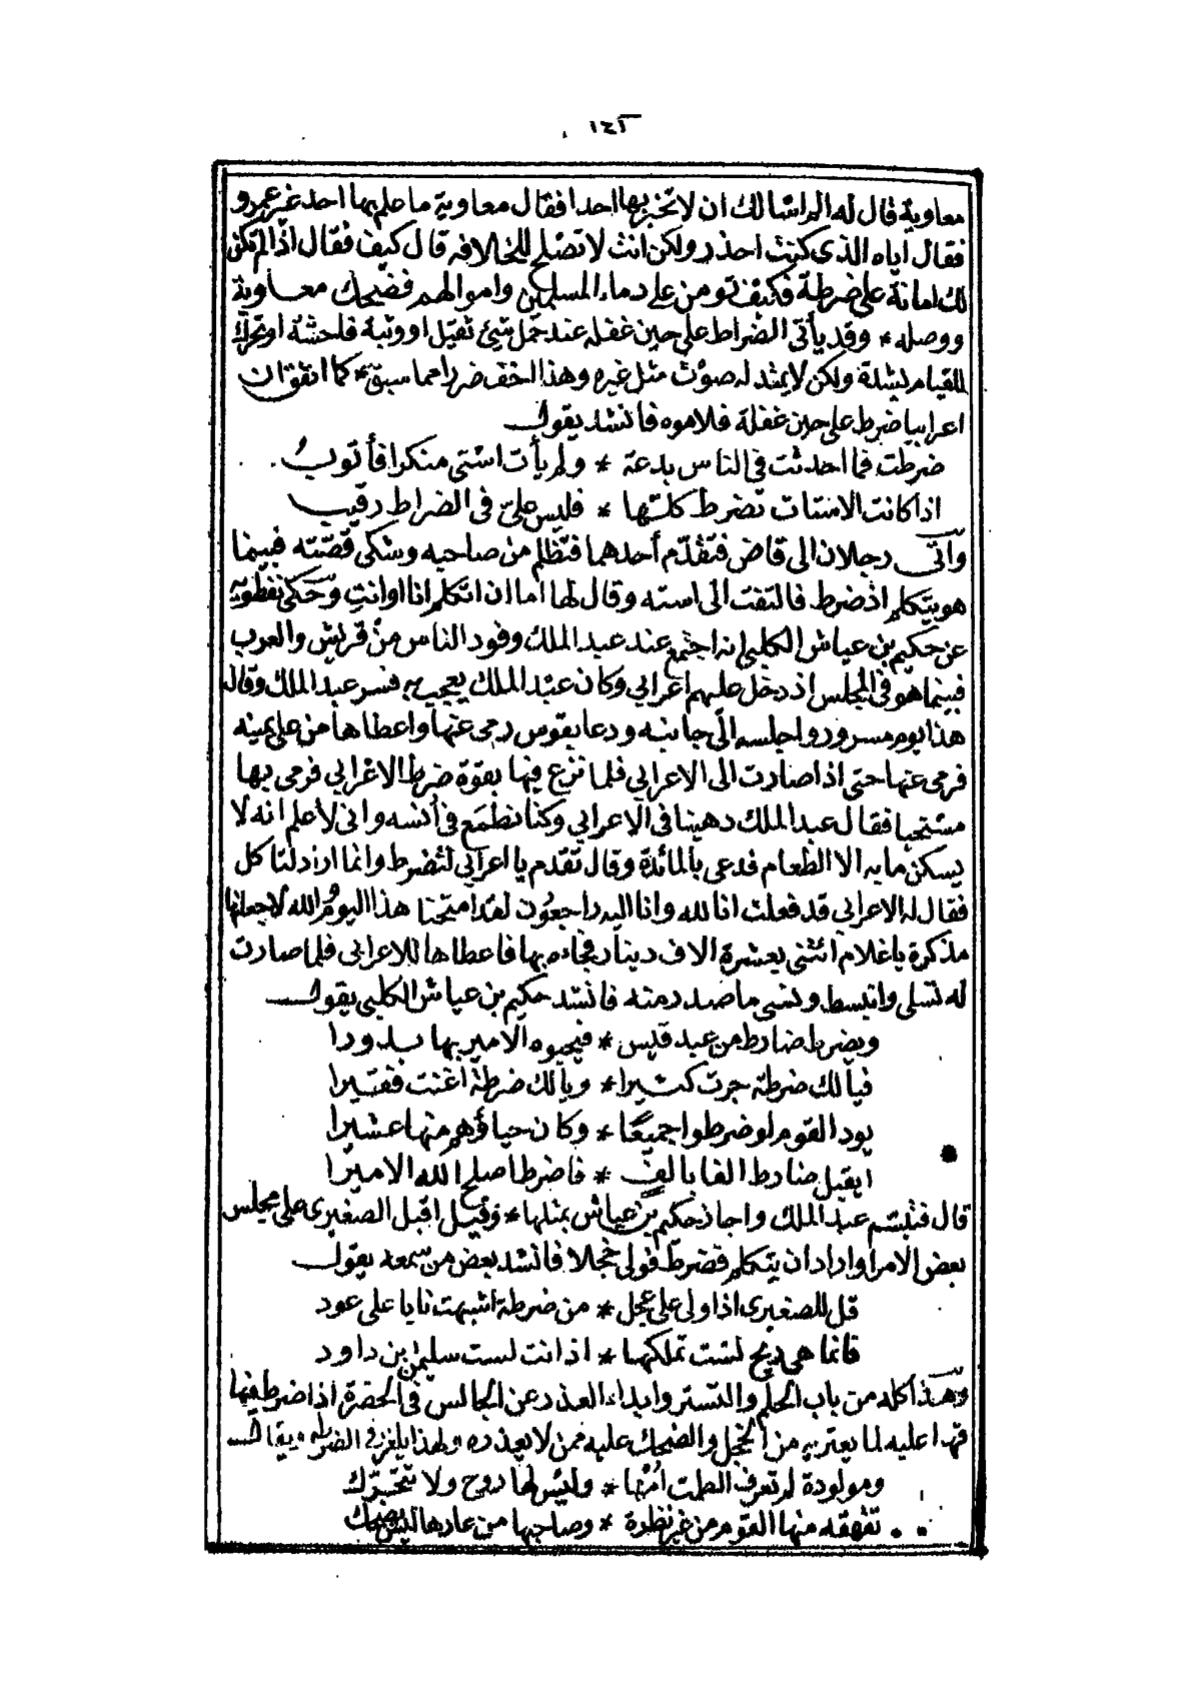 ١٤٢
معاوية قال له الم اسالك ان لا تخبر بها احدا فقال معاوية ما علم بها احد غير عمرو
فقال اياه الذى كنت احذر ولكن انت لا تصلح للخلافه قال كيف فقال اذا لم تكن
لك امانة على ضرطة فكيف تومن على دماء المسلمين واموالهم فضحك معاوية
ووصله * وقد يأتى الضراط على حين غفله عند حمل شئ ثقيل او وثبة فاحشة او تحرك
للقيام بشدة ولكن لا يمتد له صوت مثل غيره وهذا اخف ضررا مما سبق * كما اتفق ان
اعرابيا ضرط على حين غفلة فلاموه فانشد يقول
ضرطت فما احدثت فى الناس بدعة * ولم يأت استى منكرا فأتوب
اذا كانت الاستات تضرط كلها * فليس علىّ فى الضراط رقيب
وأتى رجلان الى قاض فتقدّم أحدهما فتظلم من صاحبه وشكى قصّته فبينما
هو يتكلم اذ ضرط فالتفت الى استه وقال لها اما ان اتكلم انا او انتِ وحكى نفطويه
عن حكيم بن عياش الكلبى انه اجتمع عند عبد الملك وفود الناس من قريش والعرب
فبينما هو فى المجلس اذ دخل عليهم اعرابي وكان عبد الملك يعجب به فسر عبد الملك وقال
هذا يوم مسرور واجلسه الى جانبه ودعا بقوس رمى عنها واعطاها من على يمينه
فرمى عنها حتى اذا صارت الى الاعرابي فلما نزع فيها بقوّة ضرط الاعرابي فرمى بها
مستحيا فقال عبد الملك دهينا فى الاعرابي وكنا نطمع فى أنسه وانى لأعلم انه لا
يسكن ما به الا الطعام فدعى بالمائدة وقال تقدم يا اعرابي لتضرط وانما اراد لتاكل
فقال له الاعرابي قد فعلت انا لله وانا اليه راجعون لقد امتحنا هذا اليوم والله لاجعلنها
مذكرة يا غلام ائتنى بعشرة الاف دينار فجاءه بها فاعطاها للاعرابى فلما صارت
له تسلى وانبسط ونسى ما صدر منه فانشد حكيم بن عياش الكلبى يقول
ويضرط ضارط من عبد قيس * فيحبوه الامير بها بدورا
فيالك ضرطة جرت كثيرا * ويالك ضرطة اغنت فقيرا
يود القوم لو ضرطوا جميعًا * وكان حياؤهم منها عشيرا
أيقبل ضارط الفا بالف * فاضرط اصلح الله الاميرا
قال فتبسّم عبد الملك واجاز حكيم بن عياش بمثلها * وقيل اقبل الصغيرى على مجلس
بعض الامرا واراد ان يتكلم فضرط فولى خجلا فانشد بعض من سمعه يقول
قل للصغيرى اذا ولى على عجل * من ضرطة اشبهت نايا على عود
فانما هى ريح لست تملكها * اذ انت لست سليمن بن داود
وهذا كله من باب الحلم والتستر وابداء العذر عن الجالس فى الحضرة اذا ضرط فيها
قهرا عليه لما يعتريه من الخجل والضحك عليه ممن لا يعذره ولهذا يلغز فى الضرطه ويقال
ومولودة لم تعرف الطمث امّها * وليس لها روح ولا تتحرّك
تقهقه منها القوم من غير نظرة * وصاحبها من عارها ليس يضحك